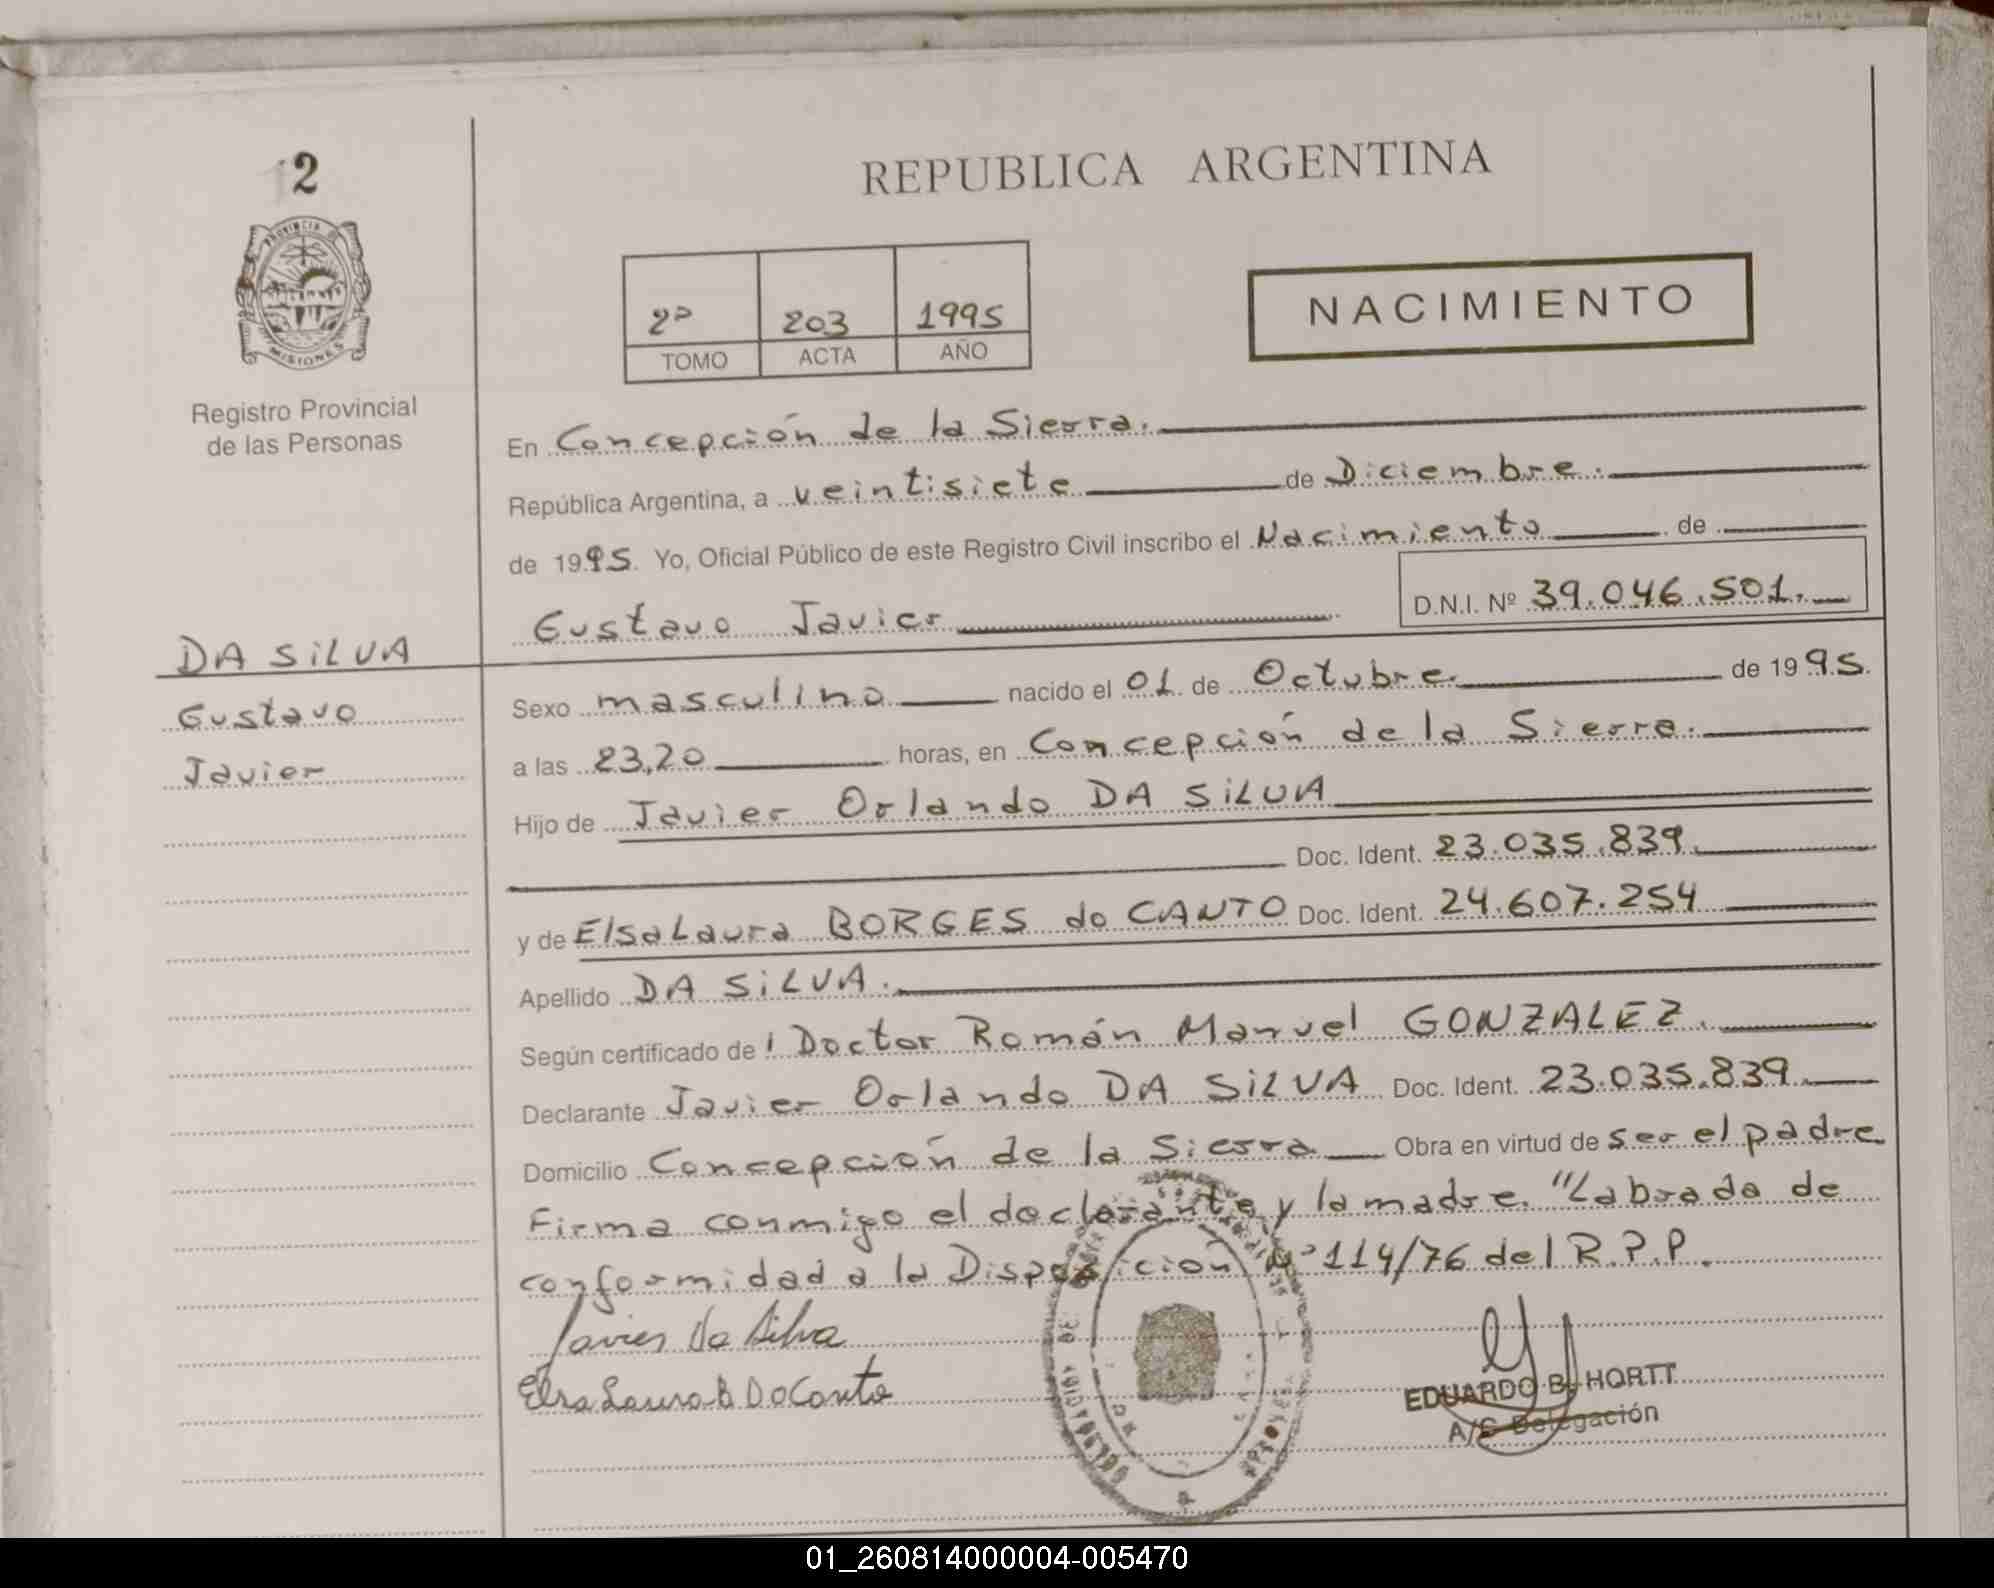 2
PROVINCIA DE
MISIONES
Registro Provincial
de las Personas
DA SiLVA
Gustavo
Javier
REPUBLICA ARGENTINA
2º 203 1995
TOMO ACTA AÑO
NACIMIENTO
En Concepción de la Sierra.
República Argentina, a veintisiete de Diciembre.
de 1995. Yo, Oficial Público de este Registro Civil inscribo el Nacimiento de
Gustavo Javier D.N.I. Nº 39.046.501.
Sexo masculino nacido el 01 de Octubre de 1995.
a las 23,20 horas, en Concepción de la Sierra.
Hijo de Javier Orlando DA SiLVA
Doc. Ident. 23.035.839.
y de Elsa Laura BORGES do CANTO Doc. Ident. 24.607.254
Apellido DA SiLVA.
Según certificado de l Doctor Román Manuel GONZALEZ.
Declarante Javier Orlando DA SiLVA Doc. Ident. 23.035.839.
Domicilio Concepción de la Sierra Obra en virtud de ser el padre
Firma conmigo el declarante y la madre. "Labrada de
conformidad a la Disposición Nº 114/76 del R.P.P.
Javier Da Silva
Elsa Laura B Do Canto
EDUARDO B. HORTT
A/C Delegación
01_260814000004-005470